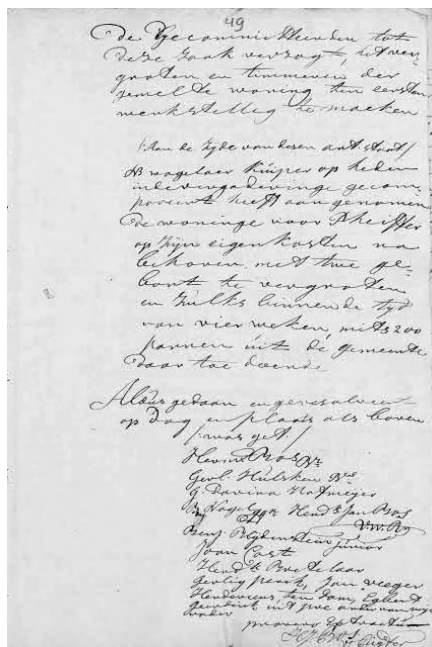 49
de Gecommitteerden tot
deze zaak verzogt, het ver-
groten en timmeren der
gemelte woning ten eersten
werkstellig te maeken
/: Aan de zyde van desen ant. staat /
NB wagelaer Kuiper op heden
in de vergaderinge gecom-
pareert heeft aan genomen
de woninge voor Pheiffer
op zijn eigen kosten na
behoren met twe ge-
bont te vergroten
en zulks binnen de tyd
van vier weken, mits 200
pannen uit de gemeente
daar toe doende
Aldus gedaan en geresolveert
op dag en plaats als boven
/:was get:/
Herm. Bos Br
Gerl. Hulsken
G. Davina Hofmeijer
Hend. Jan Bos
Benj. Blijdenstein Junior
Joan Cost
Hend. Bretelaer
Jan Veeger
Hendericus ten Dam, Egbert